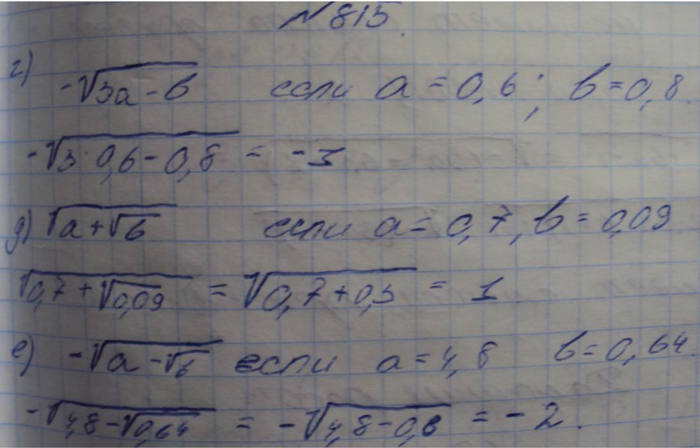 №815.
г) -√(3a-b) если a=0,6; b=0,8.
-√(3·0,6-0,8) = -1
д) √(a+√b) если a=0,7, b=0,09
√(0,7+√0,09) = √(0,7+0,3) = 1
е) -√(a-√b) если a=4,8 b=0,64
-√(4,8-√0,64) = -√(4,8-0,8) = -2.